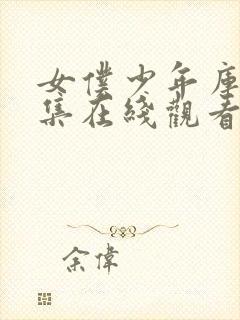 女僕少年庫
集在綫觀看
余偉